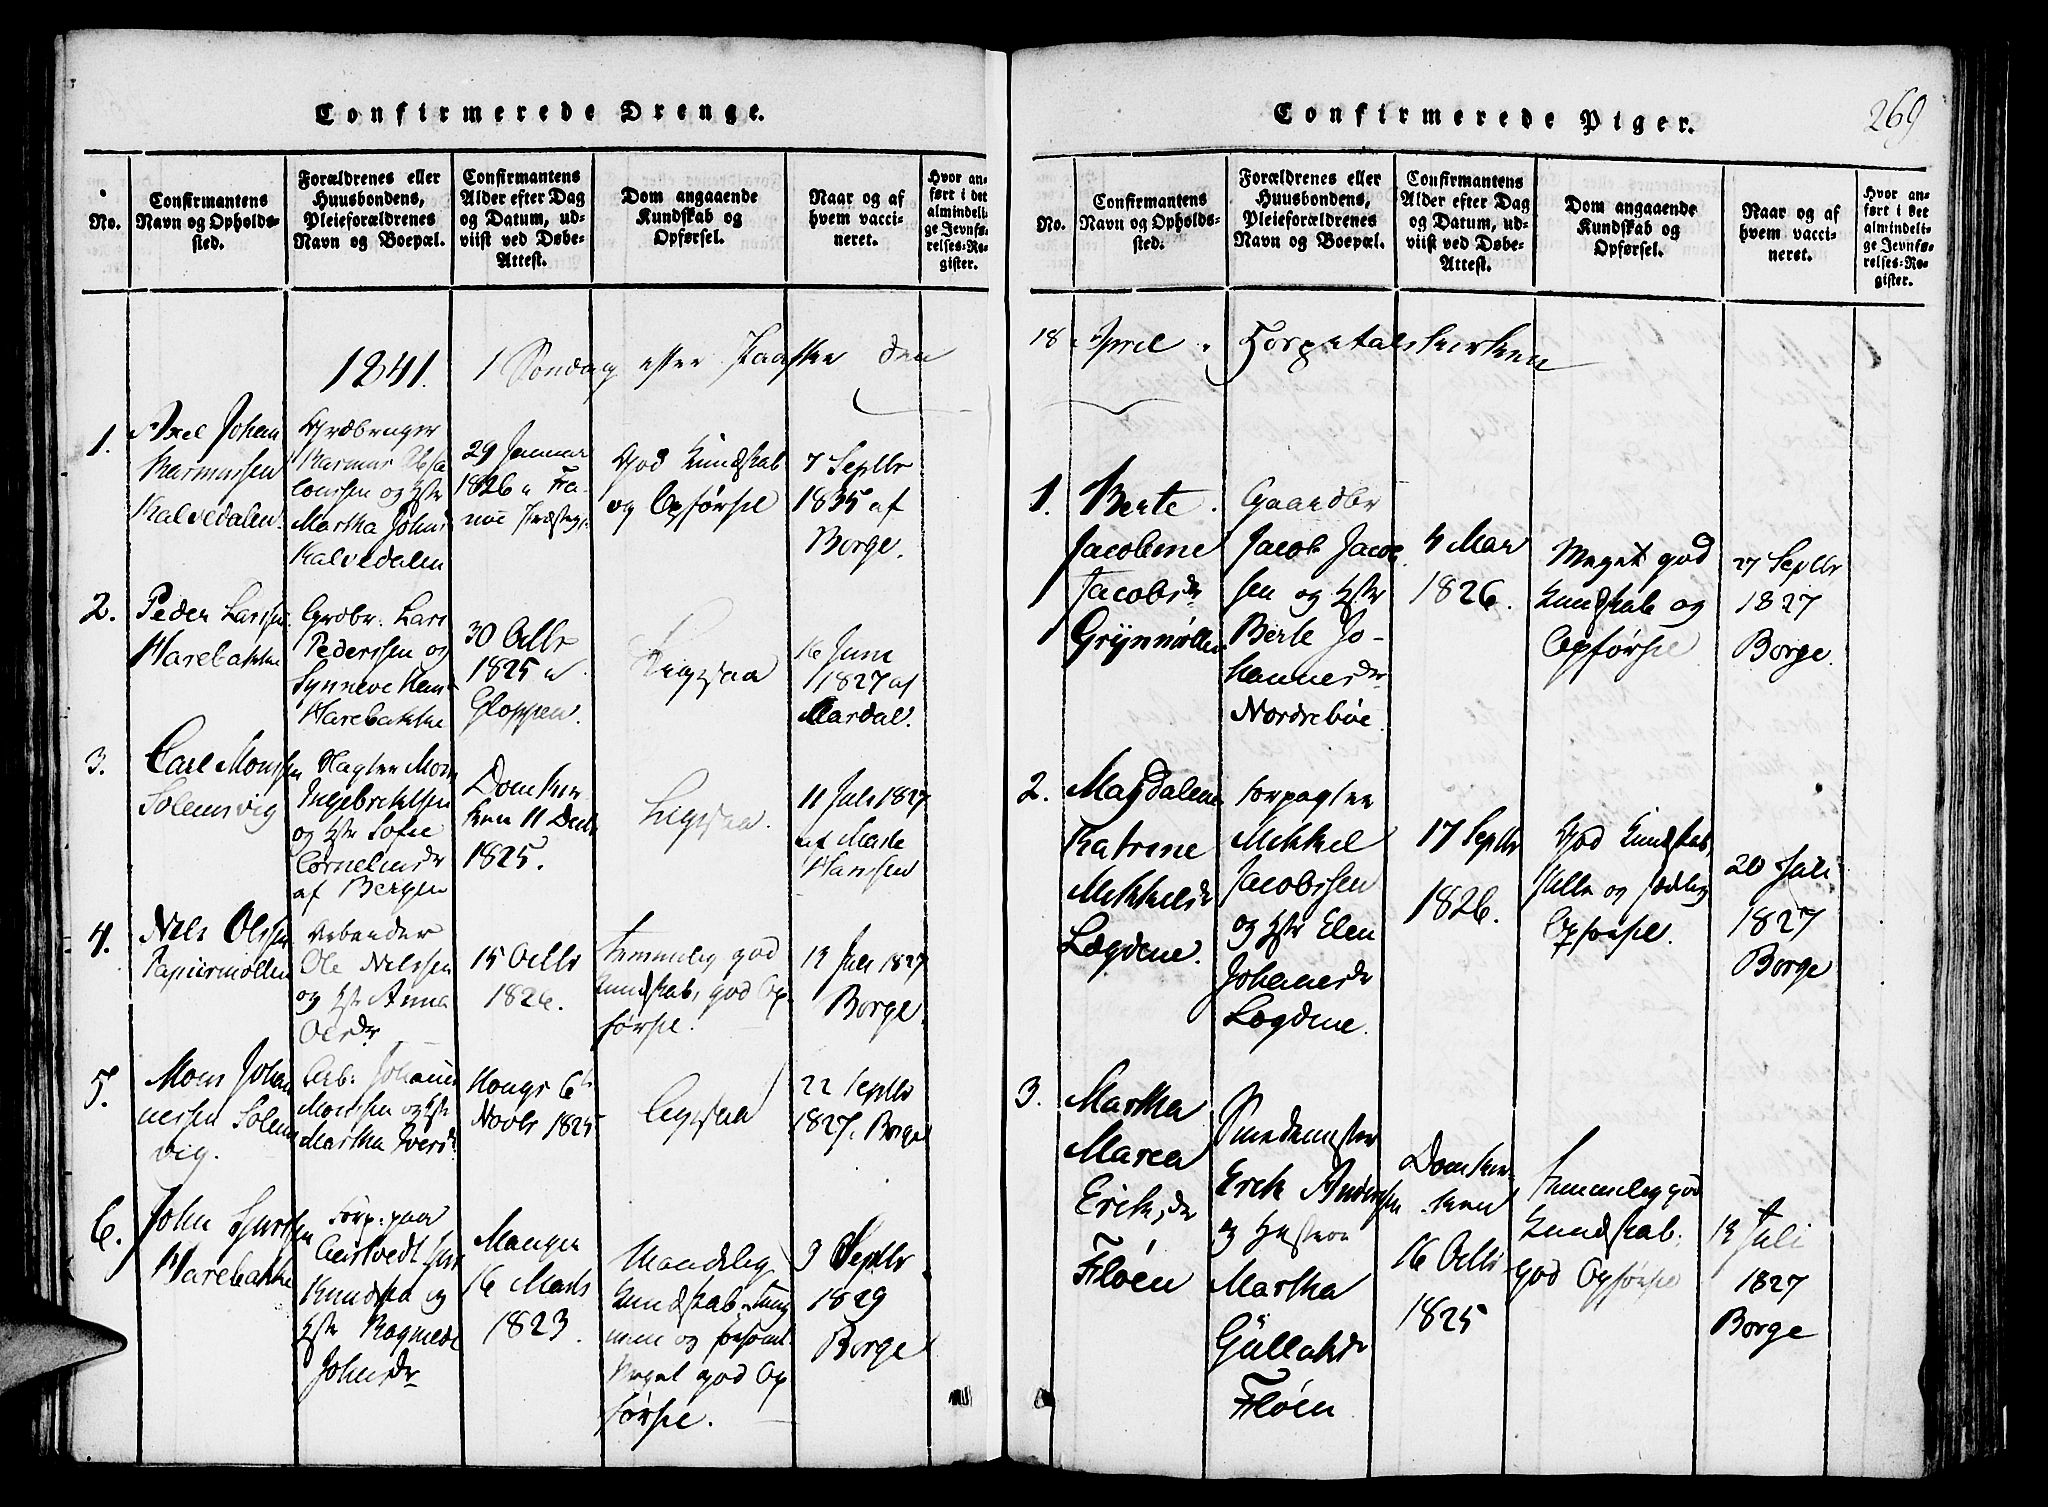 Confirmerede Drenge.
No.
Confirmantens
Navn og Opholds-
sted.
Forældrenes eller
Huusbondens,
Pleieforældrenes
Navn og Boepæl.
Confirmantens
Alder efter Dag
og Datum, ud-
viist ved Døbe-
Attest.
Dom angaaende
Kundskab og
Opførsel.
Naar og af
hvem vacci-
neret.
Hvor an-
ført i det
almindeli-
ge Jevnfø-
relses-Re-
gister.
1841. 1 Søndag efter Paaske den
1.
Axel Johan
Rasmussen
Kalvedalen
Rasmus
og Hstr
Martha Johns
Kalvedalen
29 Januar
1826
God Kundskab
og Opførsel
7 Septbr
1835 af
Borge.
2.
Peder Larssen
Harebakke
Grdbr. Lars
Pederssen og
Synneve Hans
Harebakke
30 Octbr
1825
Gloppen.
Ligesaa
16 Juni
1827 af
Aardal.
3.
Carl Monssen
Solemsvig
Slagter Mons
Ingebrektsen
og Hstr Sofie
Corneliusdr
af Bergen
Domkir
ken 11 Decbr
1825.
Ligesaa.
11 Juli 1827
af Marte
Hanssen
4.
Nils Olssen
Papiirmøllen
Arbeider
Ole Nilssen
og Hstr Anna
Olsdr
15 Octbr
1826.
temmelig god
Kundskab, god Op-
førsel.
Juli 1827
Borge.
5.
Mons Johan
nessen Solems
vig.
Arb: Johannes
Monssen og Hstr
Martha Iversd
Hougs 6te
Novbr 1825
Ligesaa
22 Septbr
1827. Borge
6.
John Sjurssen
Harebakke
Forp: paa
Knudsen og
Hstr Ragnilde
Johnsdr
Manger
16 Marts
1823.
Maadelig
Kundskab,
nem og forsømt
Meget god Op
førsel.
3 Septbr
1829
Borge
Confirmerede Piger.
269
No.
Confirmantens
Navn og Opholds-
sted.
Forældrenes eller
Huusbondens,
Pleieforældrenes
Navn og Boepæl.
Confirmantens
Alder efter Dag
og Datum, ud-
viist ved Døbe-
Attest.
Dom angaaende
Kundskab og
Opførsel.
Naar og af
hvem vacci-
neret.
Hvor an-
ført i det
almindeli-
ge Jevnfø-
relses-Re-
gister.
18 April. Hospitalskirken
1.
Berte
Jacobine
Jacobsdr
Grÿnmøllen
Gaardbr
Jacob Jacob
sen og Hstr
Berte Jo-
hannesdr
Nordrebøe.
4 Mar
1826.
Meget god
Kundskab og
Opførsel
27 Septbr
1827
Borge.
2.
Magdalene
Katrine
Mikkelsdr
Lægdene.
Forpagter
Mikkel
Jacobssen
og Hstr Elen
Johanesdr
Lægdene.
17 Septbr
1826.
God Kundskab,
stille og sædelig
Opførsel.
20 Juli
1827
Borge
3.
Martha
Maria
Eriksdr
Fløen
Smedemester
Erik Anderssen
og Hustroe
Martha
Güllaksdr
Fløen
Domkir-
ken
16 Octbr
1825
temmelig god
Kundskab.
god Opførsel
Juli
1827
Borge